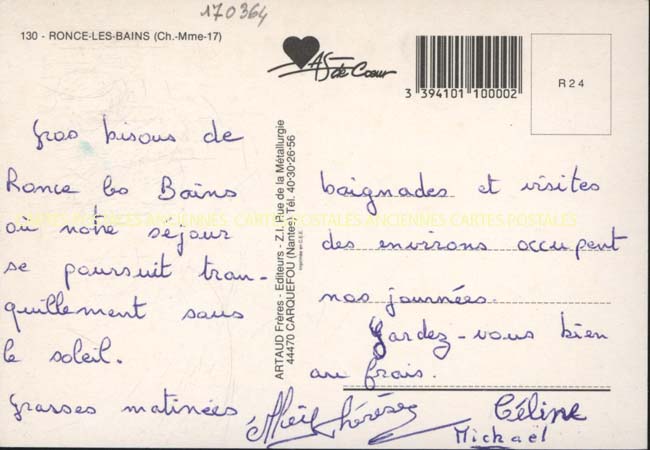 170364
130 - RONCE-LES-BAINS (Ch.-Mme-17)
AS de Cœur
3 394101 100002
R 2 4
Gros bisous de
Ronce les Bains
où notre séjour
se poursuit tran-
quillement sous
le soleil.
Grasses matinées
ARTAUD Frères - Editeurs - Z.I. Rue de la Métallurgie
44470 CARQUEFOU (Nantes) Tél. 40-30-26-56
Imprimée en C.E.E.
baignades et visites
des environs occupent
nos journées.
Gardez-vous bien
au frais.
Céline
Michaël
CARTES POSTALES ANCIENNES CARTES POSTALES ANCIENNES CARTES POSTALES